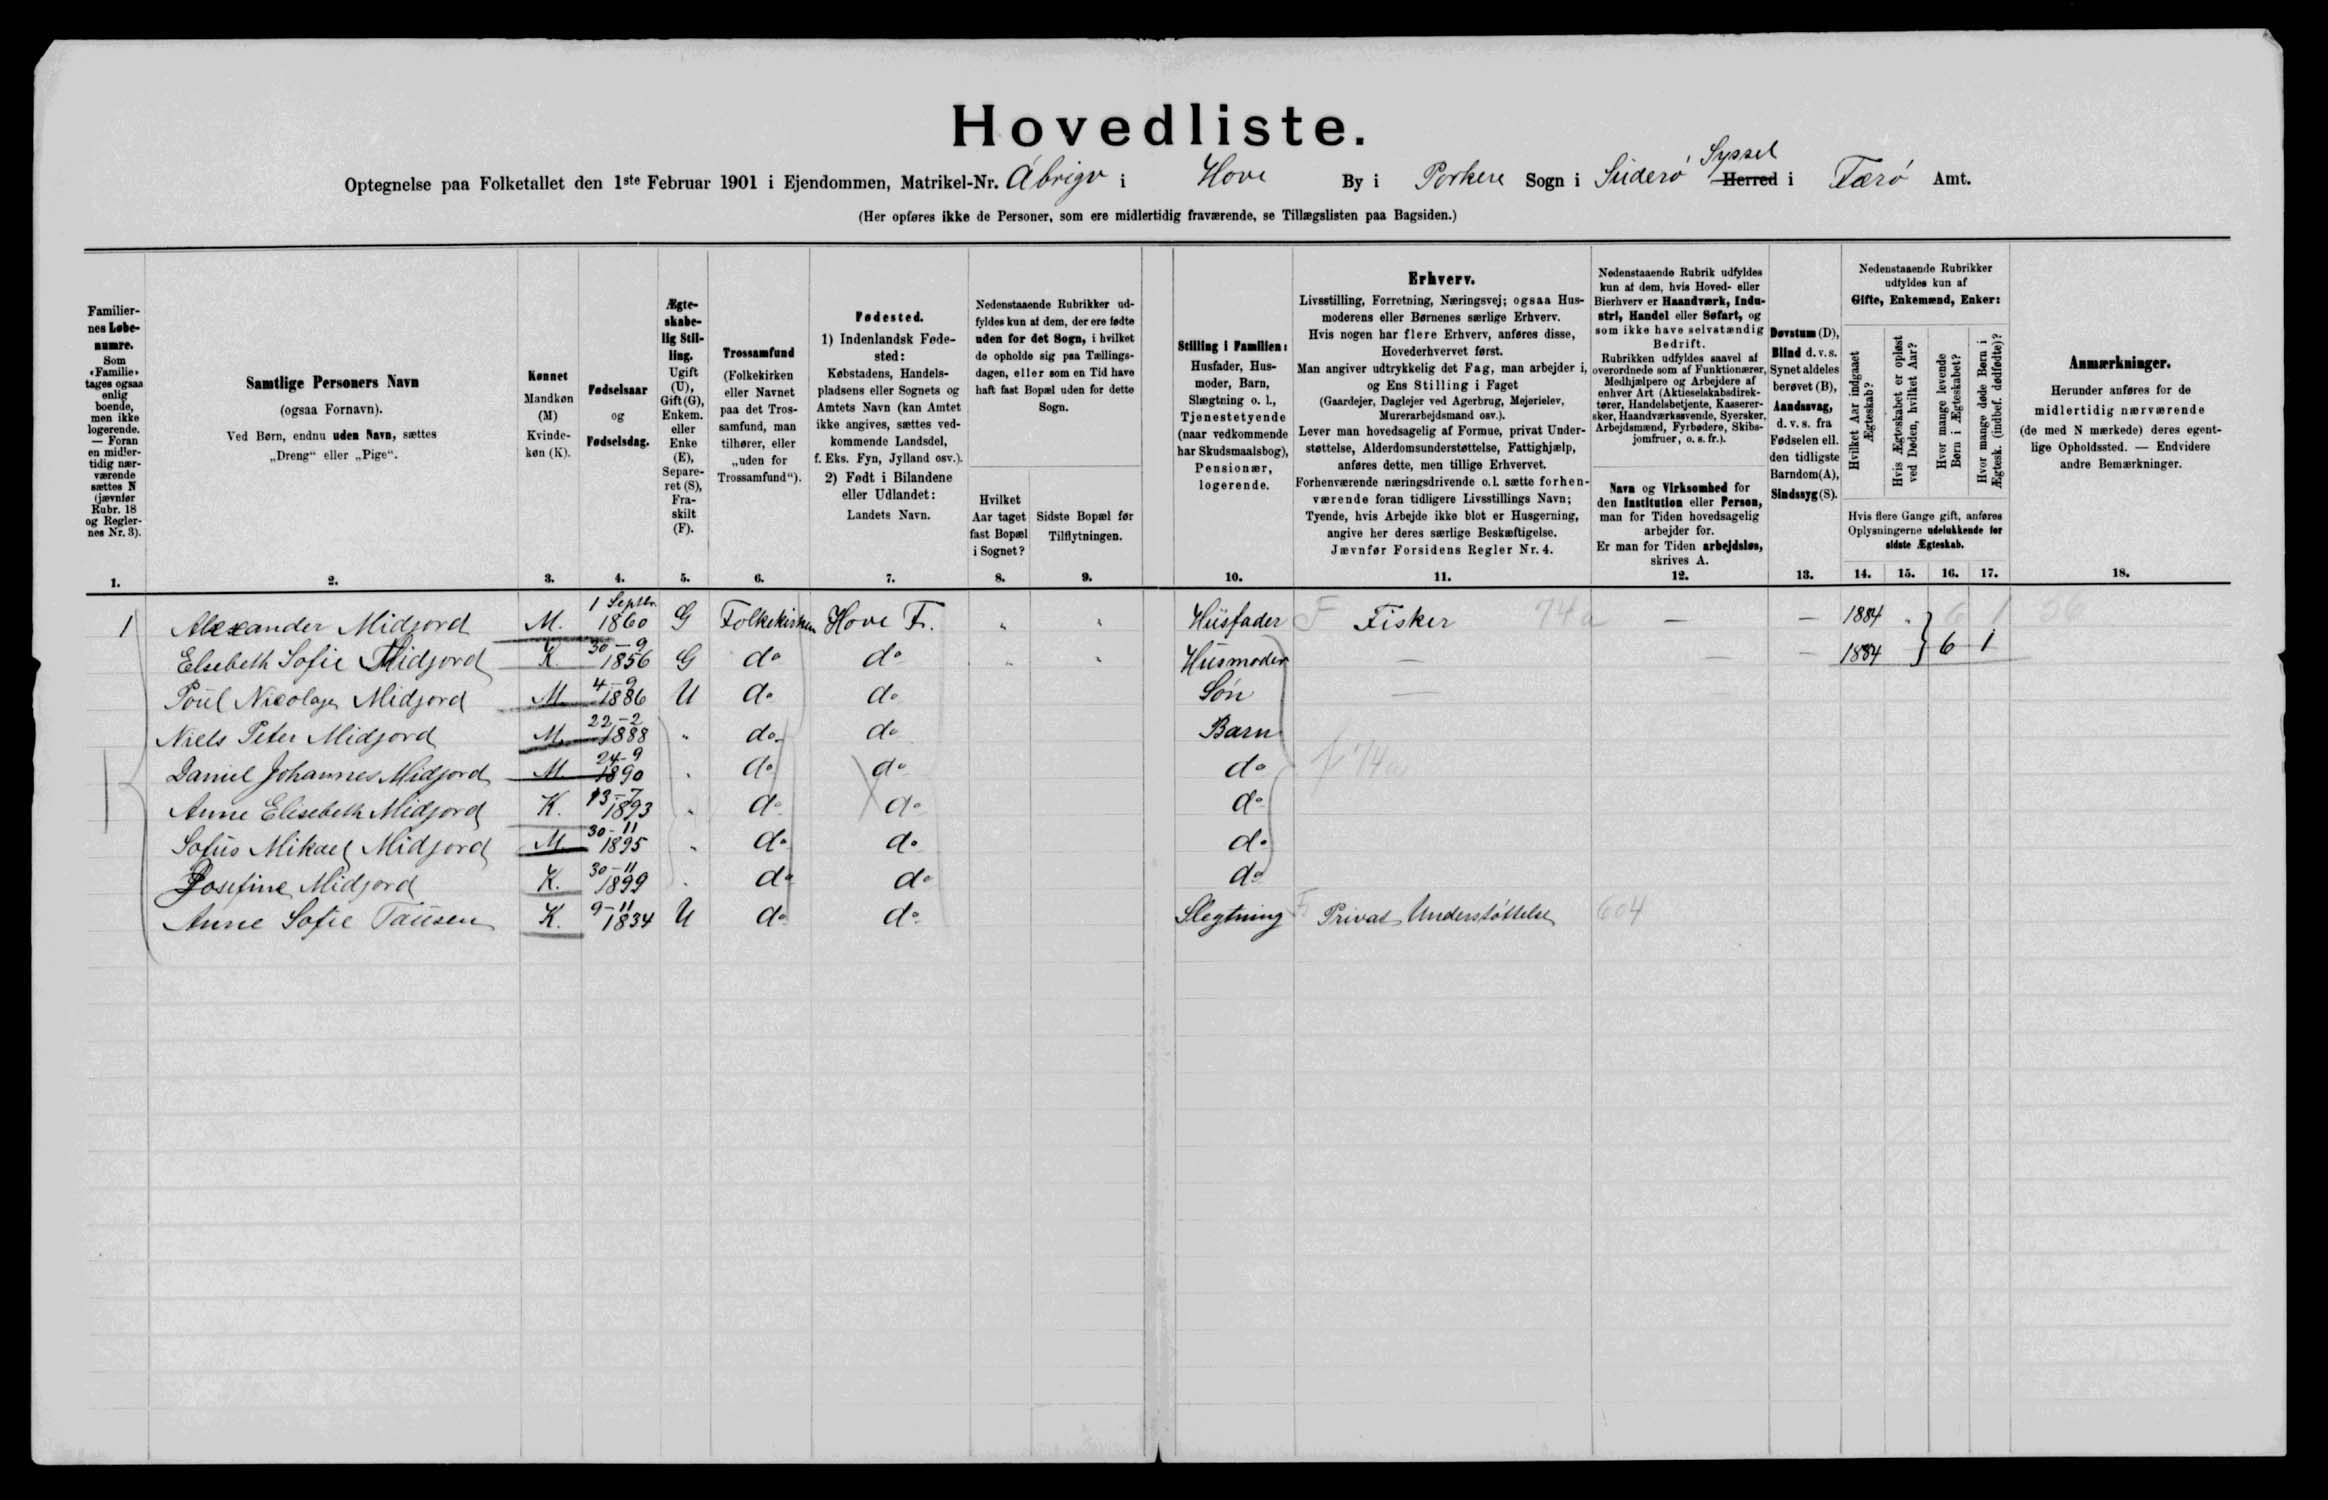 Hovedliste.
Optegnelse paa Folketallet den 1ste Februar 1901 i Ejendommen, Matrikel-Nr. Åbrigv i Hove By i Porkere Sogn i Suderø Syssel Herred i Færø Amt.
(Her opføres ikke de Personer, som ere midlertidig fraværende, se Tillægslisten paa Bagsiden.)
Familiernes Løbenumre. Som «Familie» tages ogsaa enlig boende, men ikke logerende. — Foran en midlertidig nærværende sættes N (jævnfør Rubr. 18 og Reglernes Nr. 3).
Samtlige Personers Navn (ogsaa Fornavn). Ved Børn, endnu uden Navn, sættes „Dreng“ eller „Pige“.
Kønnet Mandkøn (M) Kvindekøn (K).
Fødselsaar og Fødselsdag.
Ægteskabelig Stilling. Ugift (U), Gift (G), Enkem. eller Enke (E), Separeret (S), Fraskilt (F).
Trossamfund (Folkekirken eller Navnet paa det Trossamfund, man tilhører, eller „uden for Trossamfund“).
Fødested. 1) Indenlandsk Fødested: Købstadens, Handelspladsens eller Sognets og Amtets Navn (kan Amtet ikke angives, sættes vedkommende Landsdel, f. Eks. Fyn, Jylland osv.). 2) Født i Bilandene eller Udlandet: Landets Navn.
Nedenstaaende Rubrikker udfyldes kun af dem, der ere fødte uden for det Sogn, i hvilket de opholde sig paa Tællingsdagen, eller som en Tid have haft fast Bopæl uden for dette Sogn.
Hvilket Aar taget fast Bopæl i Sognet?
Sidste Bopæl før Tilflytningen.
Stilling i Familien: Husfader, Husmoder, Barn, Slægtning o. l., Tjenestetyende (naar vedkommende har Skudsmaalsbog), Pensionær, logerende.
Erhverv.
Livsstilling, Forretning, Næringsvej; ogsaa Husmoderens eller Børnenes særlige Erhverv.
Hvis nogen har flere Erhverv, anføres disse, Hovederhvervet først.
Man angiver udtrykkelig det Fag, man arbejder i, og Ens Stilling i Faget
(Gaardejer, Daglejer ved Agerbrug, Mejerielev, Murerarbejdsmand osv.).
Lever man hovedsagelig af Formue, privat Understøttelse, Alderdomsunderstøttelse, Fattighjælp, anføres dette, men tillige Erhvervet.
Forhenværende næringsdrivende o. l. sætte forhenværende foran tidligere Livsstillings Navn;
Tyende, hvis Arbejde ikke blot er Husgerning, angive her deres særlige Beskæftigelse.
Jævnfør Forsidens Regler Nr. 4.
Nedenstaaende Rubrik udfyldes kun af dem, hvis Hoved- eller Bierhverv er Haandværk, Industri, Handel eller Søfart, og som ikke have selvstændig Bedrift.
Rubrikken udfyldes saavel af overordnede som af Funktionærer, Medhjælpere og Arbejdere af enhver Art (Aktieselskabsdirektører, Handelsbetjente, Kasserersker, Haandværkssvende, Syersker, Arbejdsmænd, Fyrbødere, Skibsjomfruer, o. s. fr.).
Navn og Virksomhed for den Institution eller Person, man for Tiden hovedsagelig arbejder for.
Er man for Tiden arbejdsløs, skrives A.
Døvstum (D), Blind d. v. s. Synet aldeles berøvet (B), Aandssvag, d. v. s. fra Fødselen ell. den tidligste Barndom (A), Sindssyg (S).
Nedenstaaende Rubrikker udfyldes kun af Gifte, Enkemænd, Enker:
Hvilket Aar indgaaet Ægteskab?
Hvis Ægteskabet er opløst ved Døden, hvilket Aar?
Hvor mange levende Børn i Ægteskabet?
Hvor mange døde Børn i Ægtesk. (indbef. dødfødte)?
Hvis flere Gange gift, anføres Oplysningerne udelukkende for sidste Ægteskab.
Anmærkninger. Herunder anføres for de midlertidig nærværende (de med N mærkede) deres egentlige Opholdssted. — Endvidere andre Bemærkninger.
1. 2. 3. 4. 5. 6. 7. 8. 9. 10. 11. 12. 13. 14. 15. 16. 17. 18.
1 Alexander Midjord M. 1 Septbr. 1860 G Folkekirken Hove F. " " Husfader F Fisker 74a — — 1884 " 6 1 36
Elsebeth Sofie Midjord K. 30-9 1856 G do do " " Husmoder — — — 1884 6 1
Poul Nicolaj Midjord M. 4-9 1886 U do do Søn —
Niels Peter Midjord M. 22-2 1888 " do do Barn
Daniel Johannes Midjord M. 24-9 1890 " do do do f 74a
Anne Elisebeth Midjord K. 13-7 1893 " do do do
Sofus Mikael Midjord M. 30-11 1895 " do do do
Josefine Midjord K. 30-11 1899 " do do do
Anne Sofie Tausen K. 9-11 1834 U do do Slegtning F Privat Understøttelse 604